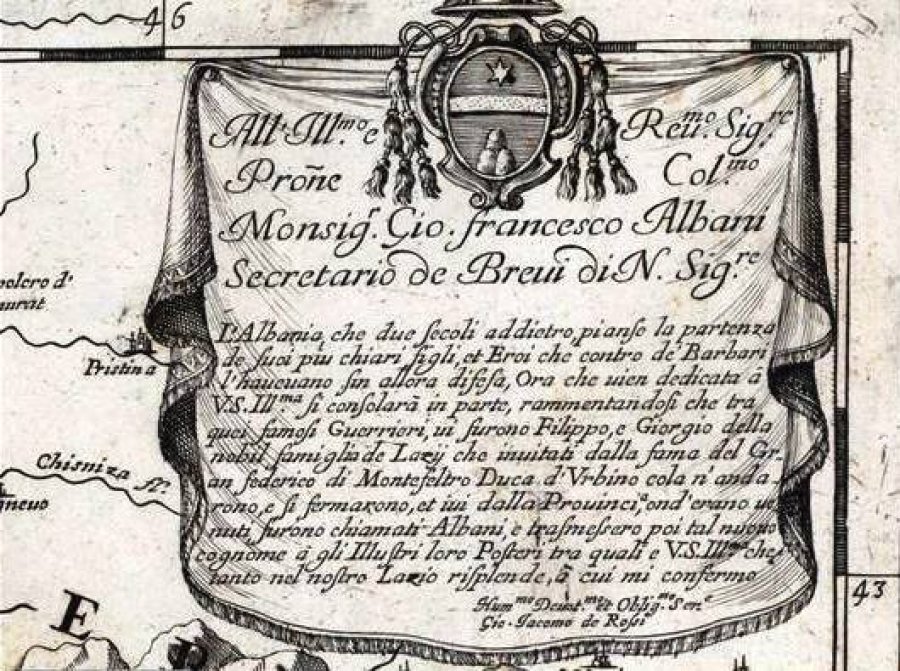 46
All' Ill.mo e Reu.mo Sig.re
Proñe Col.mo
Monsig.r Gio. francesco Albani
Secretario de Breui di N. Sig.re
L'Albania, che due secoli addietro, pianse la partenza
de suoi piu chiari figli, et Eroi che contro de' Barbari
l'haueuano sin allora difesa, Ora che uien dedicata â
V.S. Ill.ma si consolarâ in parte, rammentandosi che tra
quei famosi Guerrieri, ui furono Filippo, e Giorgio della
nobil famiglia de Lazy che inuitati dalla fama del Gr-
an federico di Montefeltro Duca d'Vrbino cola n'anda-
rono, e si fermarono, et iui dalla Prouinci,a ond'erano ue
nuti, furono chiamati Albani, e trasmessero poi tal nuouo
cognome â gli Illustri loro Posteri tra quali e V.S. Ill.ma che
tanto nel nostro Lazio risplende, â cui mi confermo
Hum.mo Deuot.mo et Oblig.mo Ser.e
Gio. Jacomo de Rossi
polero d'
murat
Pristina
Chisniza fl.
gneuo
43
E